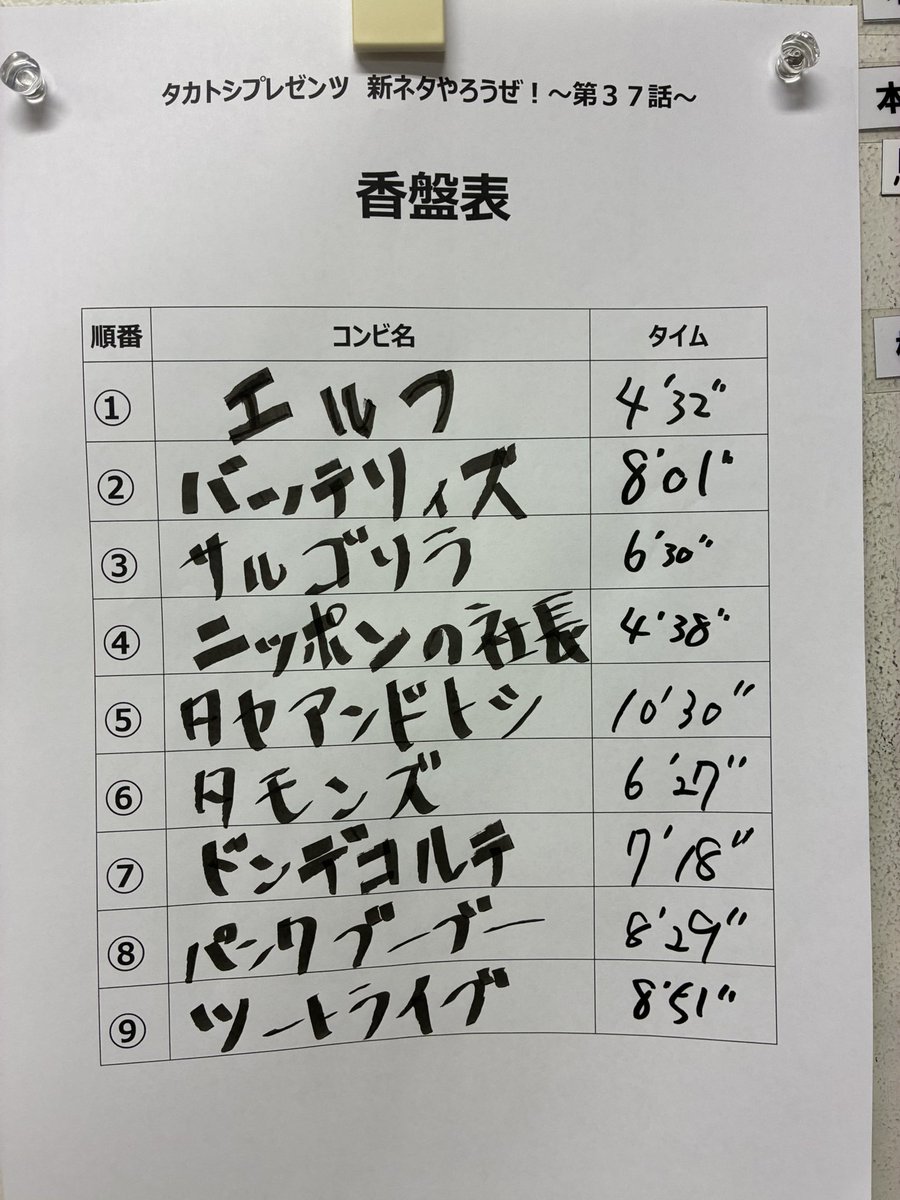 タカトシプレゼンツ 新ネタやろうぜ！～第３７話～
香盤表
順番 コンビ名 タイム
① エルフ 4'32"
② バッテリィズ 8'01"
③ サルゴリラ 6'30"
④ ニッポンの社長 4'38"
⑤ タカアンドトシ 10'30"
⑥ タモンズ 6'27"
⑦ ドンデコルテ 7'18"
⑧ パンクブーブー 8'29"
⑨ ツートライブ 8'51"
本